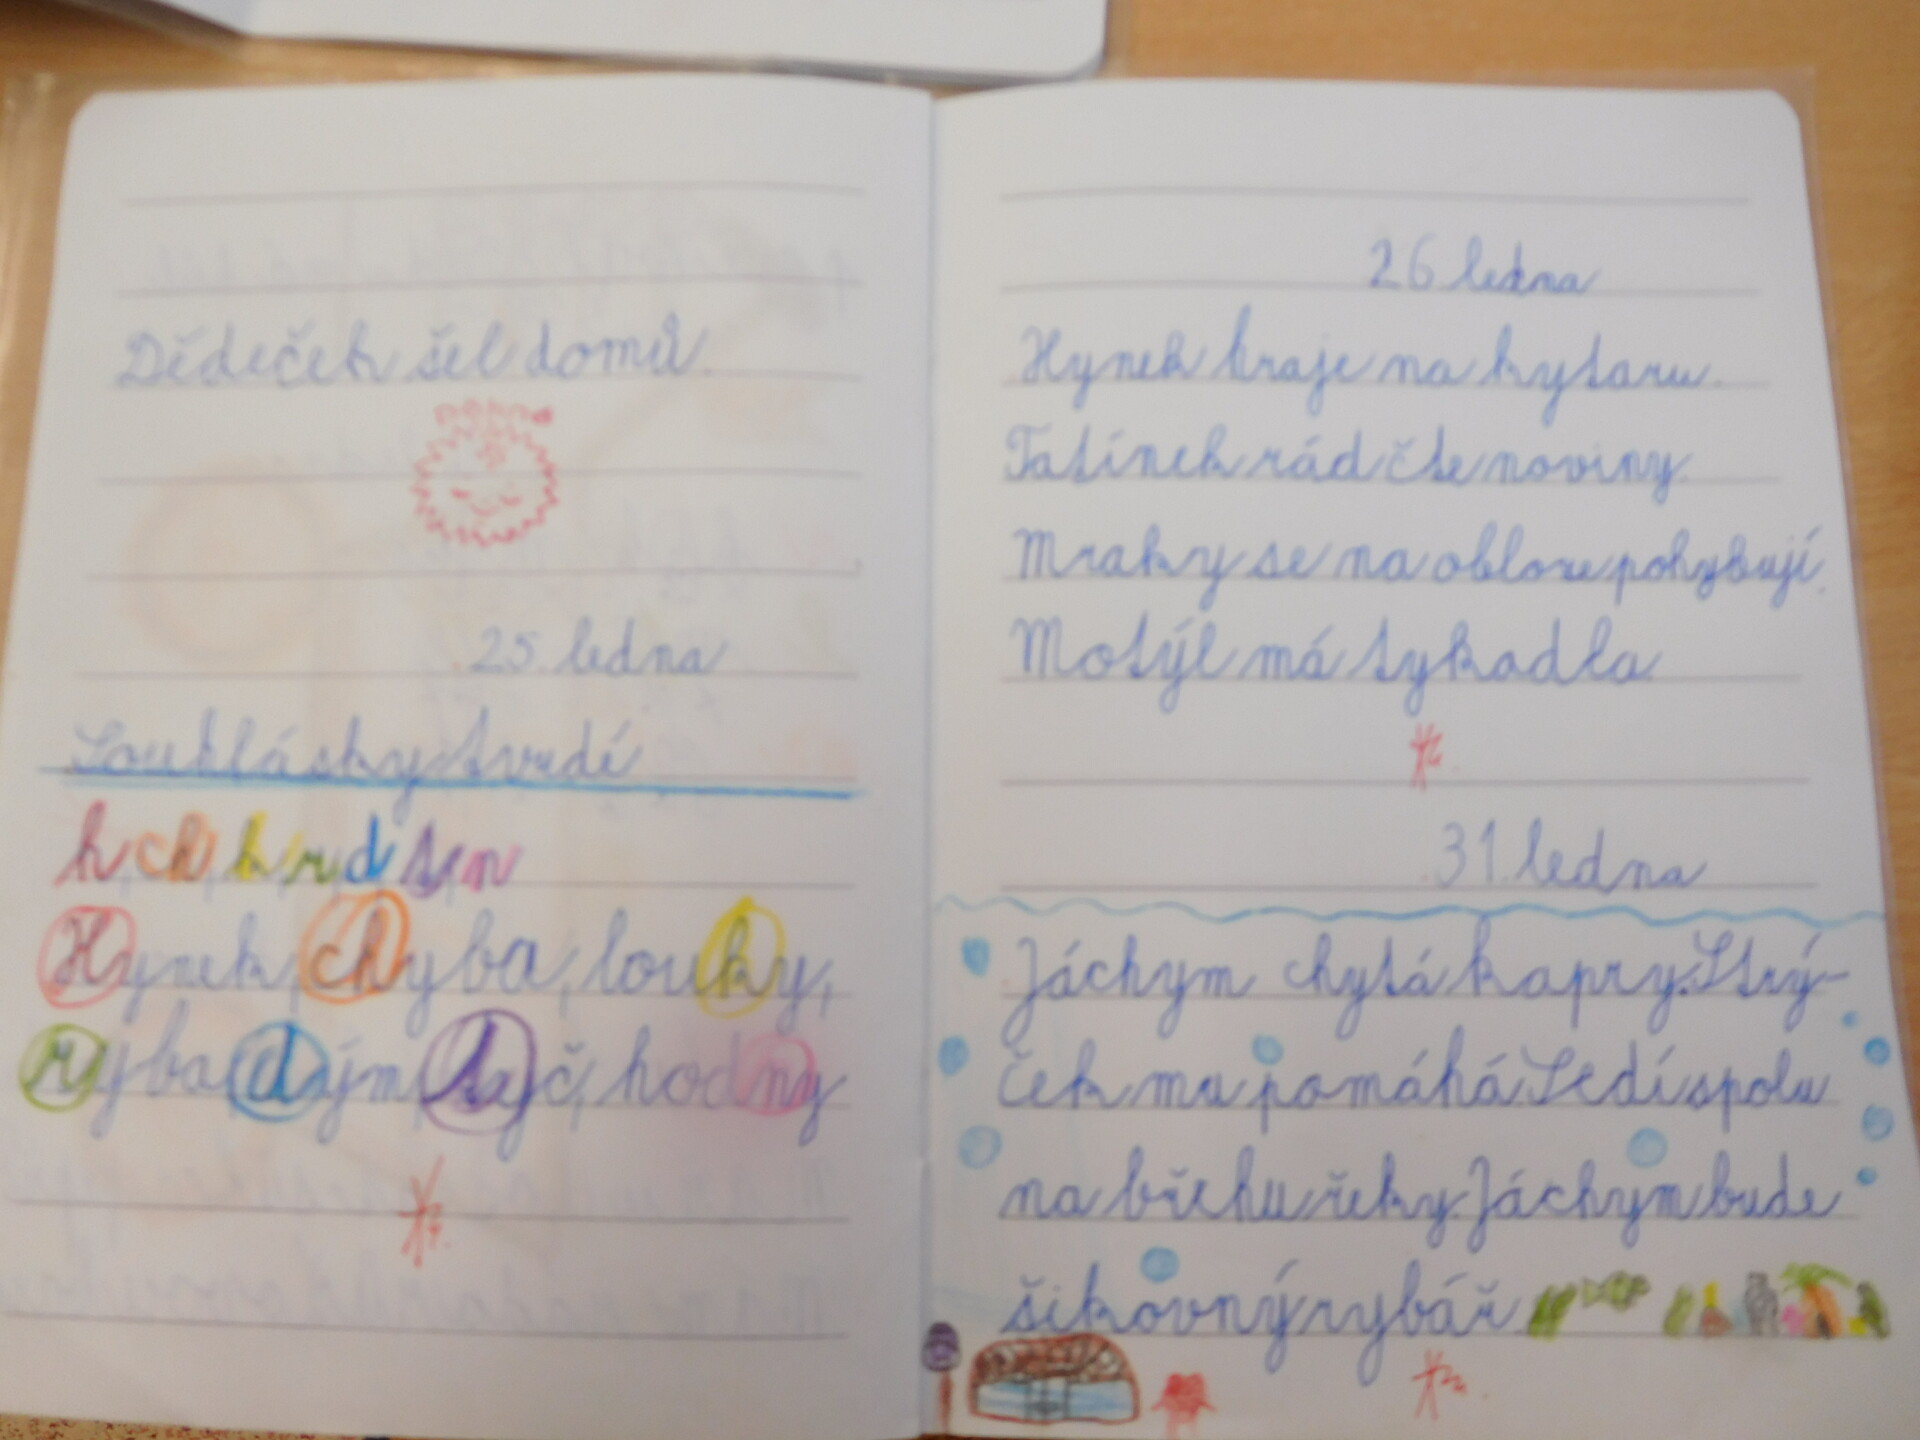 Dědeček šel domů.
25. ledna
Souhlásky tvrdé
h, ch, k, r, d, t, n
Hynek, chyba, louky,
ryba, dým, tyč, hodny
26 ledna
Hynek hraje na kytaru.
Tatínek rád čte noviny.
Mraky se na obloze pohybují.
Motýl má tykadla
31. ledna
Jáchym chytá kapry. Strý-
ček mu pomáhá. Sedí spolu
na břehu řeky. Jáchym bude
šikovný rybář